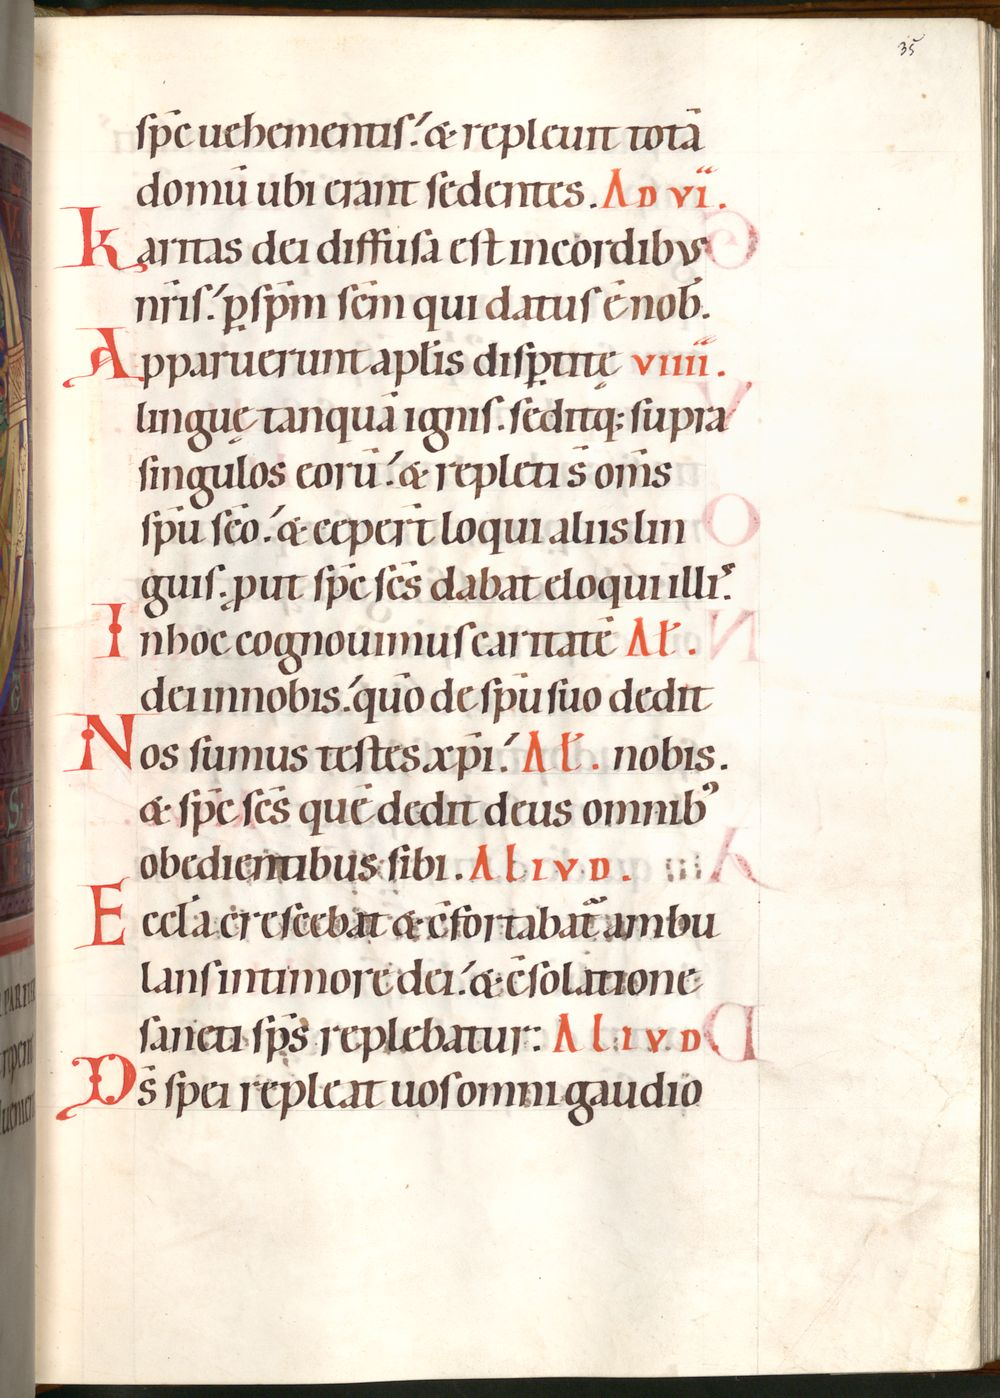 35
sp̅c uehementis. & repleuit totā
domū ubi erant sedentes. AD VIA.
Karitas dei diffusa est incordibus
nr̅is. p sp̅m sc̅m qui datus ē nob̅.
Apparuerunt apl̅is disptitę VIIII.
linguę tanquā ignis. seditq; supra
singulos eorū. & repleti s̅ om̅s
sp̅u sc̅o. & ceper̅t loqui aliis lin
guis. put sp̅c sc̅s dabat eloqui illis.
Inhoc cognouimus caritatē Al̅.
dei innobis. quo̅ de sp̅u suo dedit
Nos sumus testes xp̅i. Al̅. nobis.
& sp̅c sc̅s quē dedit deus omnib'
obedientibus sibi. ALIVD.
Eccl̅a crescebat & c̅fortabat ambu
lans intimore dei. & c̅solatione
sancti sp̅s replebatur: ALIVD
Ds̅ spei repleat uos omni gaudio